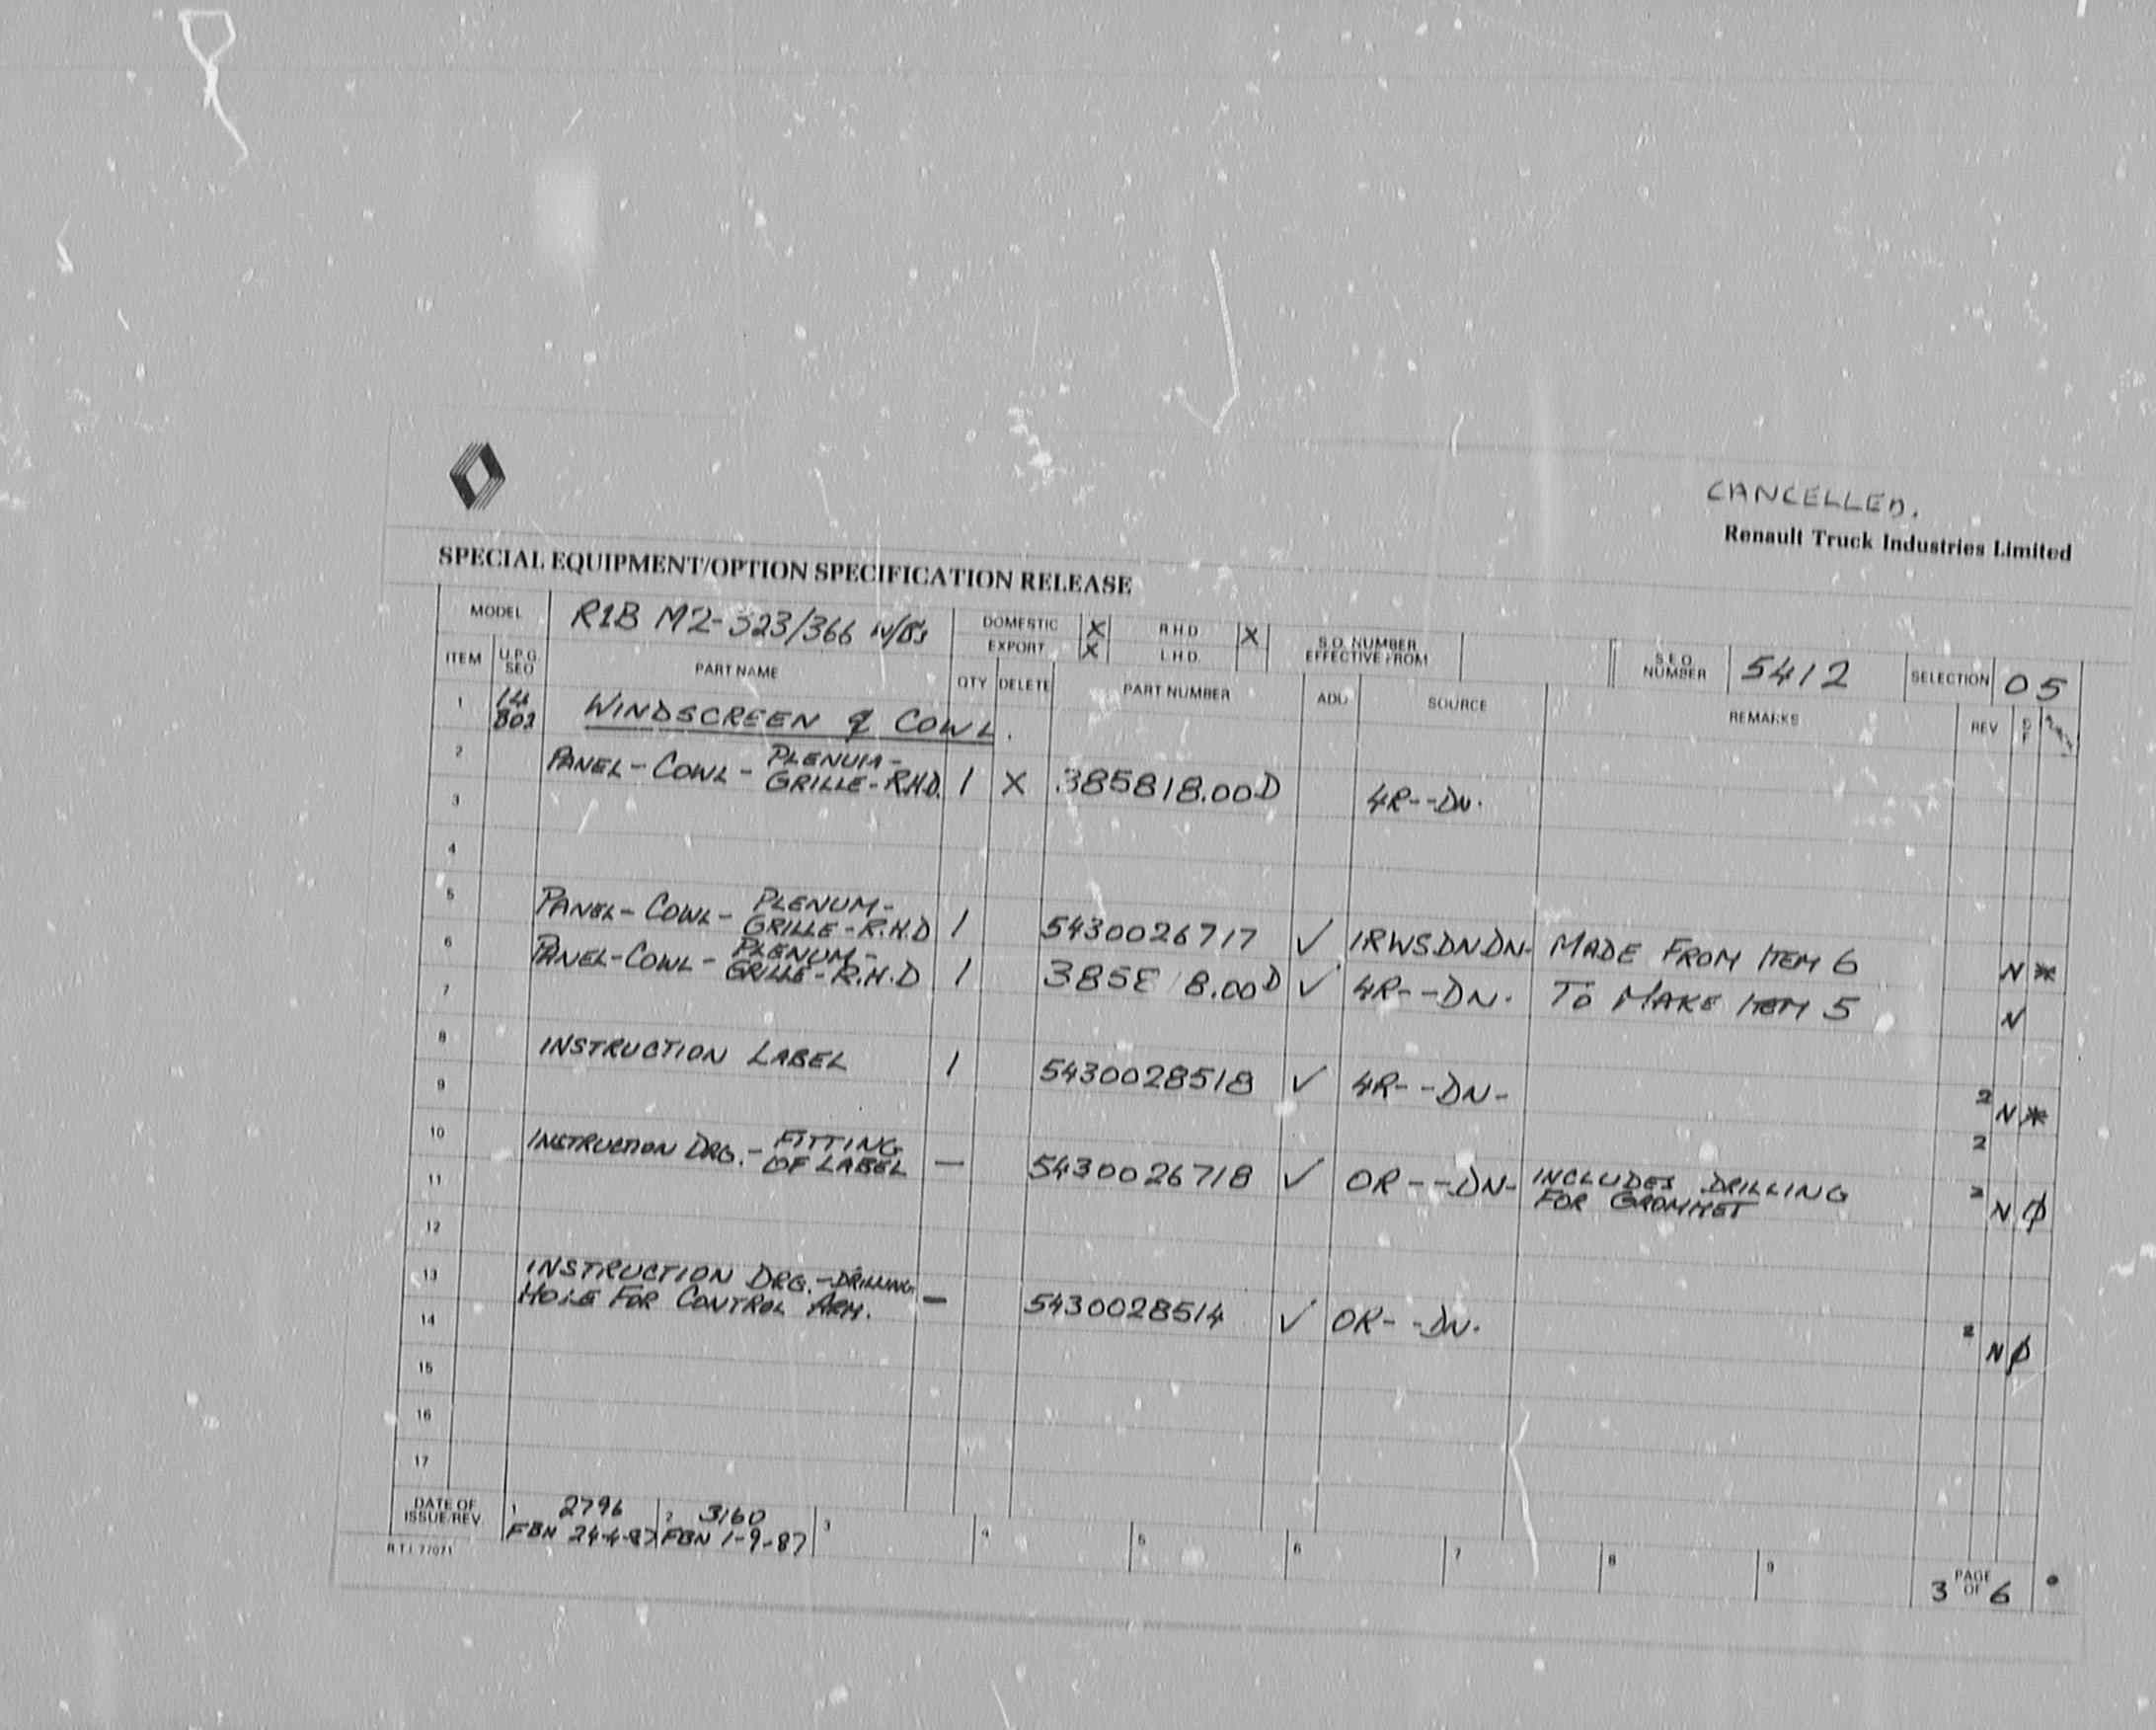 CANCELLED.
Renault Truck Industries Limited
SPECIAL EQUIPMENT/OPTION SPECIFICATION RELEASE
MODEL R1B M2-323/366 W/B's DOMESTIC X R.H.D. X S.O. NUMBER EFFECTIVE FROM S.E.O. NUMBER 5412 SELECTION 05
EXPORT X L.H.D.
ITEM U.P.G. SEQ PART NAME QTY DELETE PART NUMBER ADD SOURCE REMARKS REV
1 14 802 WINDSCREEN & COWL.
2 PANEL-COWL-PLENUM-GRILLE-R.H.D. 1 X 385818.00D 4R--DN.
3
4
5 PANEL-COWL-PLENUM-GRILLE-R.H.D 1 5430026717 ✓ 1RWSDNDN- MADE FROM ITEM 6 N *
6 PANEL-COWL-PLENUM-GRILLE-R.H.D 1 385818.00D ✓ 4R--DN. TO MAKE ITEM 5 N
7
8 INSTRUCTION LABEL 1 5430028518 ✓ 4R--DN- 2 N *
9 2
10 INSTRUCTION DRG.-FITTING OF LABEL — 5430026718 ✓ OR--DN- INCLUDES DRILLING FOR GROMMET 2 N Ø
11
12
13 INSTRUCTION DRG.-DRILLING HOLE FOR CONTROL ARM. — 5430028514 ✓ OR--DN. 2 N Ø
14
15
16
17
DATE OF ISSUE/REV. 1 2796 2 3160 3 4 5 6 7 8 9
FBN 24-4-87 FBN 1-9-87
R.T.I. 77071
3 PAGE OF 6